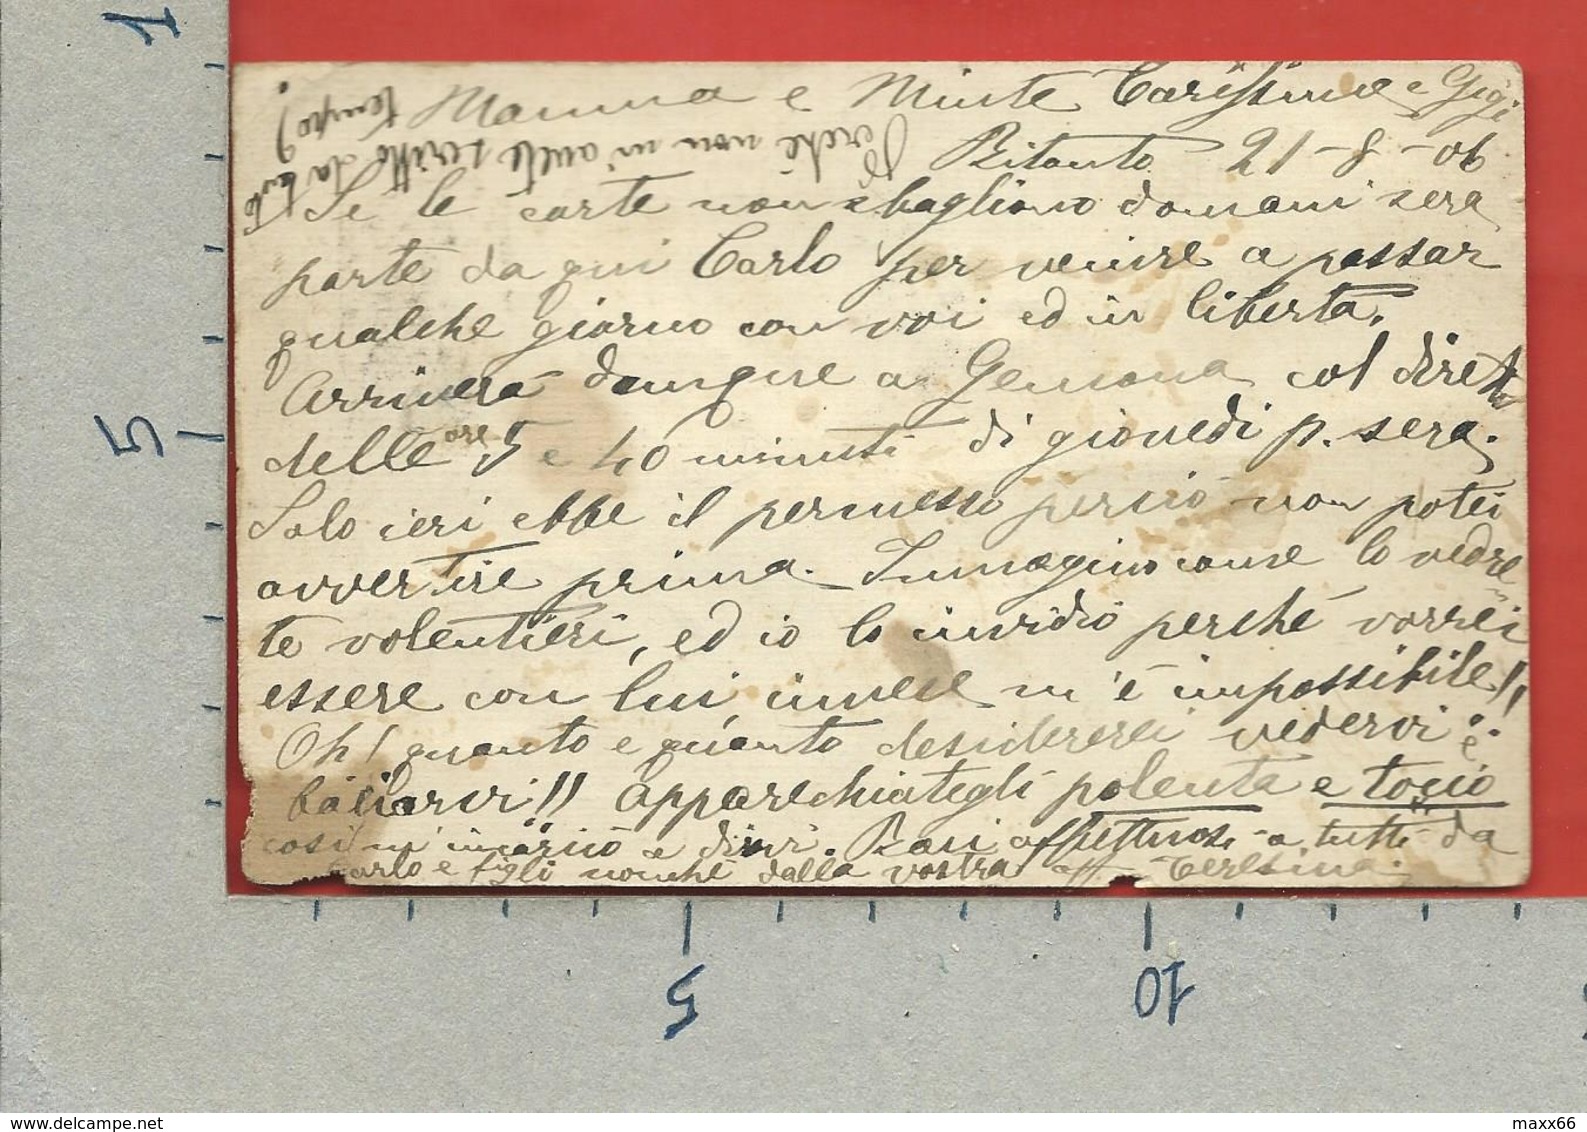 Mamma e Minte Carissime e Gigi
Bitonto 21-8-06
Perché non m'avete scritto da tanto
tempo?
Se le carte non sbagliano domani sera
parte da qui Carlo per venire a passar
qualche giorno con voi ed in libertà.
Arriverà dunque a Gemona col diretto
delle ore 5 e 40 minuti di giovedì p. sera.
Solo ieri ebbe il permesso perciò non potei
avvertire prima. Immagino come lo vedre
te volentieri, ed io lo invidio perché vorrei
essere con lui, invece m'è impossibile!!
Oh! quanto e quanto desidererei vedervi e
baciarvi!! Apparechiategli polenta e tocio
così mi incaricò a dirvi. Baci affettuosi a tutti da
Carlo e figli nonché dalla vostra aff Teresina.
1
5
5
10
www.delcampe.net
maxx66